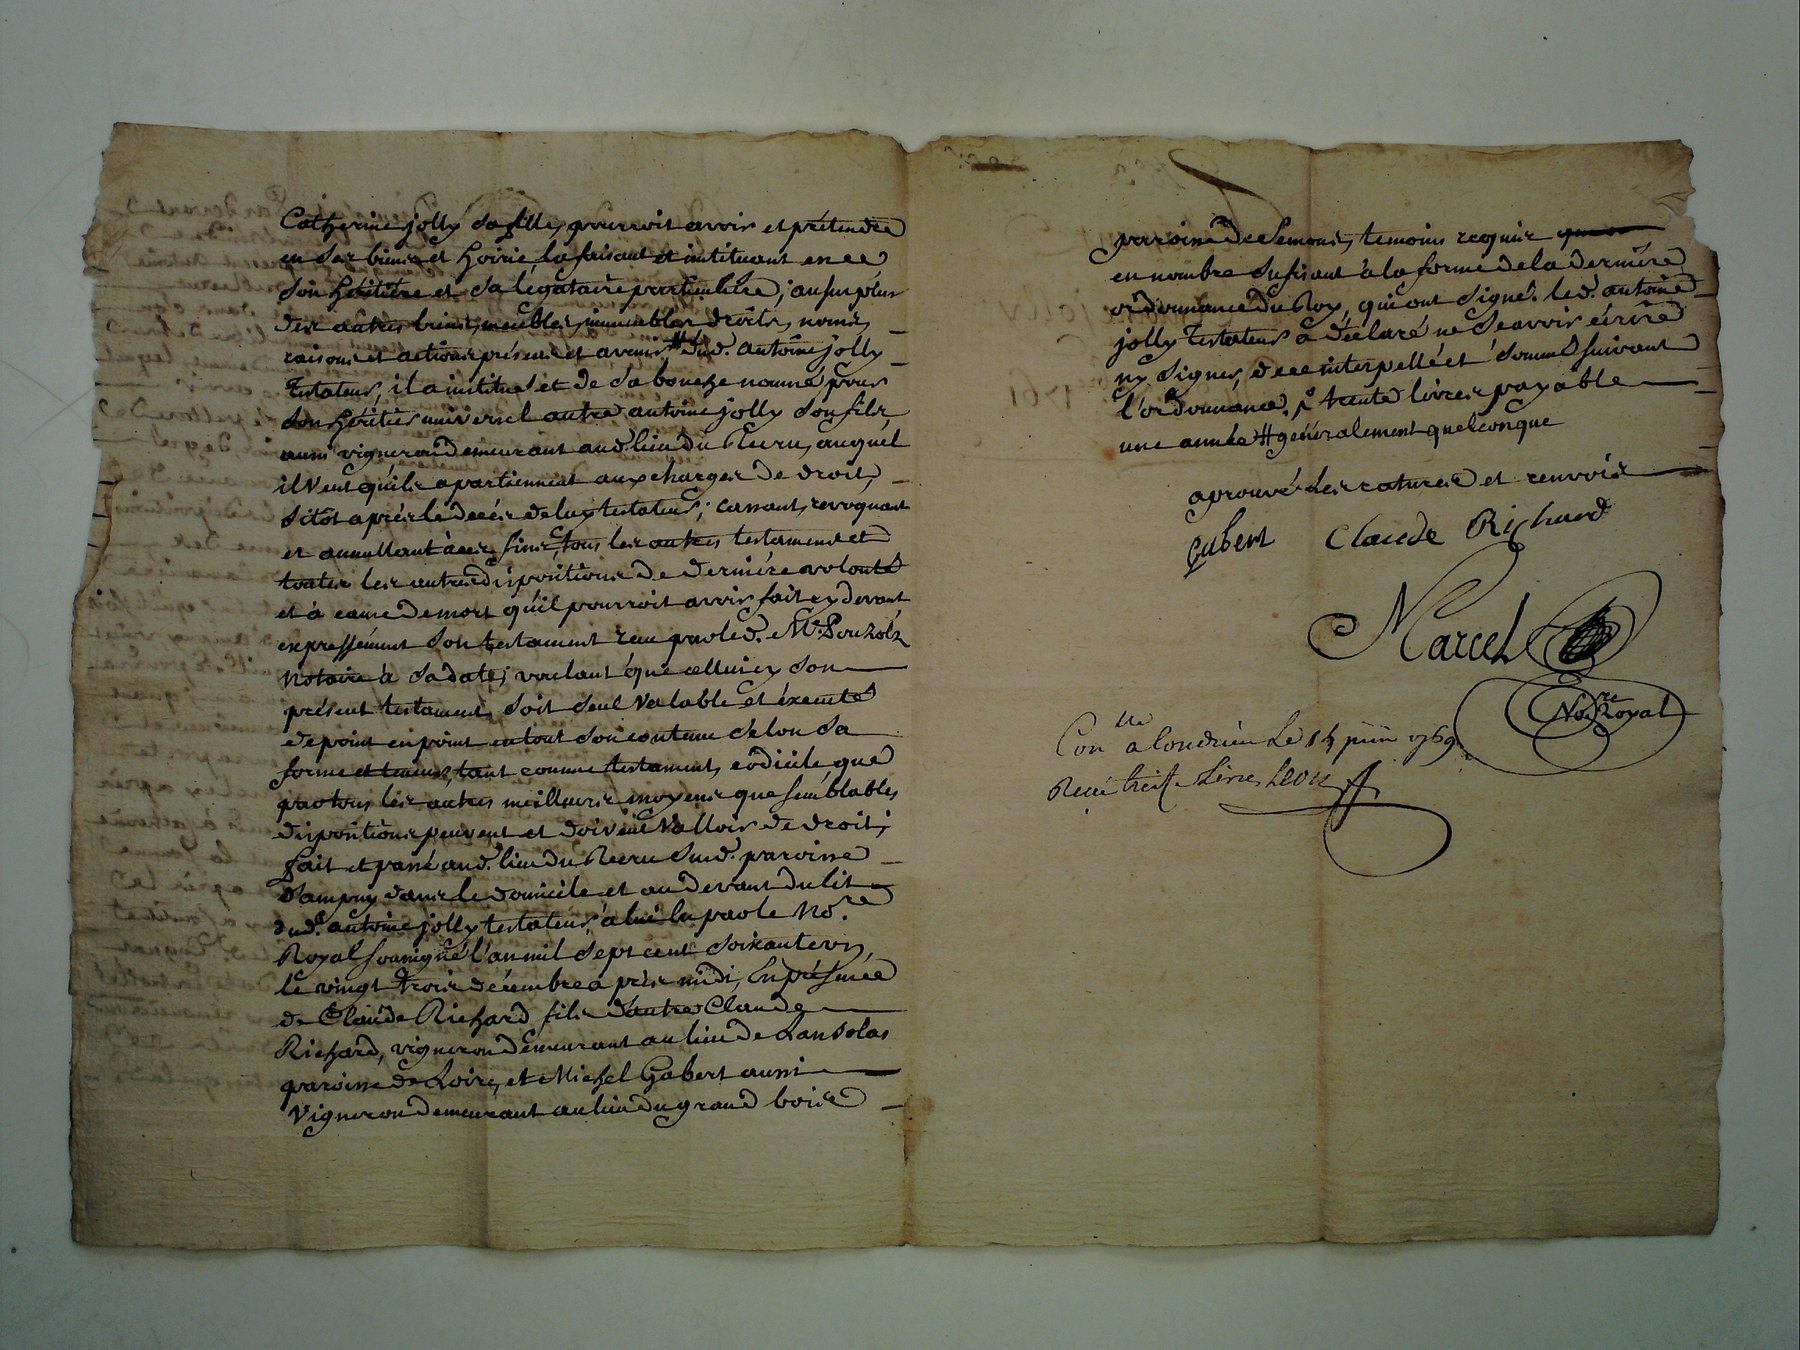 Catherine jolly sa fille, pourroit avoir et prétendre
en ses biens et hoirie, la faisant et instituant en ce
son héritière et sa légataire particulière; au surplus
des autres biens, meubles, immeubles, droits, noms,
raisons et actions présens et avenirs # dud. antoine jolly
testateur, il a institué et de sa bouche nommé pour
son héritier universel autre antoine jolly son fils,
aussi vigneron demeurant aud. lieu du Recru, auquel
il veut qu'ils apartiennent aux charges de droit,
sitôt après le decés de luy testateur; cassant, revoquant
et annullant à ces fins, tous les autres testamens et
toutes les autres dispositions de dernière volonté
et à cause de mort qu'il pourroit avoir fait cy devant
expressément son testament reçu par led. Me. Pouzolz
notaire à sa date; voulant que celluicy son
présent testament, soit seul valable et éxecuté
de point en point en tout son contenu selon sa
forme et teneur, tant comme testament, codicile que
par tous les autres meilleurs moyens que semblables
dispositions peuvent et doivent valloir de droit;
fait et passé aud. lieu du Recru sud. paroisse
d'ampuy dans le domicile et au devant du lit
dud. antoine jolly testateur, a lui lu par le Nore.
Royal soussigné l'an mil sept cent soixante un,
le vingt trois décembre après midi, En présence
de Claude Richard fils d'autre Claude
Richard, vigneron demeurant au lieu de Lansolas
paroisse de Loire, et Michel Gabert aussi
vigneron demeurant au lieu du grand bois
paroisse de Semons, temoins requis
en nombre sufisant à la forme de la dernière
ordonnance du Roy, qui ont signé. led. antoine
jolly testateur a déclaré ne sçavoir écrire
ny signer, de ce interpellé et sommé suivant
l'ordonnance. trente livres payable
une année # généralement quelconque
aprouvé les ratures et renvois
gabert Claude Richard
Marcel
Nore Royal
Conlle a Condrieu Le 15 juin 1769
Recu treise Livres